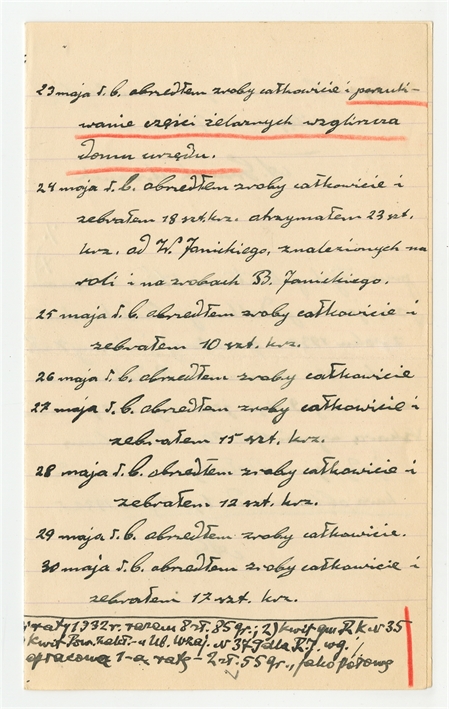 23 maja r.b. obszedłem zroby całkowicie i poszuki-
wanie części żelaznych wzgliszcza
domu urzędu.
24 maja r.b. obszedłem zroby całkowicie i
zebrałem 18 szt. krz. otrzymałem 23 szt.
krz. od W. Janickiego, znalezionych na
roli i na zrobach B. Janickiego.
25 maja r.b. obszedłem zroby całkowicie i
zebrałem 10 szt. krz.
26 maja r.b. obszedłem zroby całkowicie
27 maja r.b. obszedłem zroby całkowicie i
zebrałem 15 szt. krz.
28 maja r.b. obszedłem zroby całkowicie i
zebrałem 12 szt. krz.
29 maja r.b. obszedłem zroby całkowicie.
30 maja r.b. obszedłem zroby całkowicie i
zebrałem 17 szt. krz.
raty 1932 r. razem 8 zł. 85 gr.; 2) kwit gm. № 35
kwit Pow. Zakł. Ub. Wzaj. № 379
opłacono 1-ą ratę - 2 zł. 55 gr., jako połowę